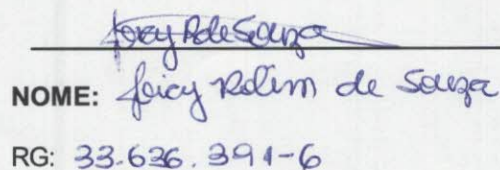 Joicy R de Souza
NOME: Joicy Rolim de Souza
RG: 33.636.391-6